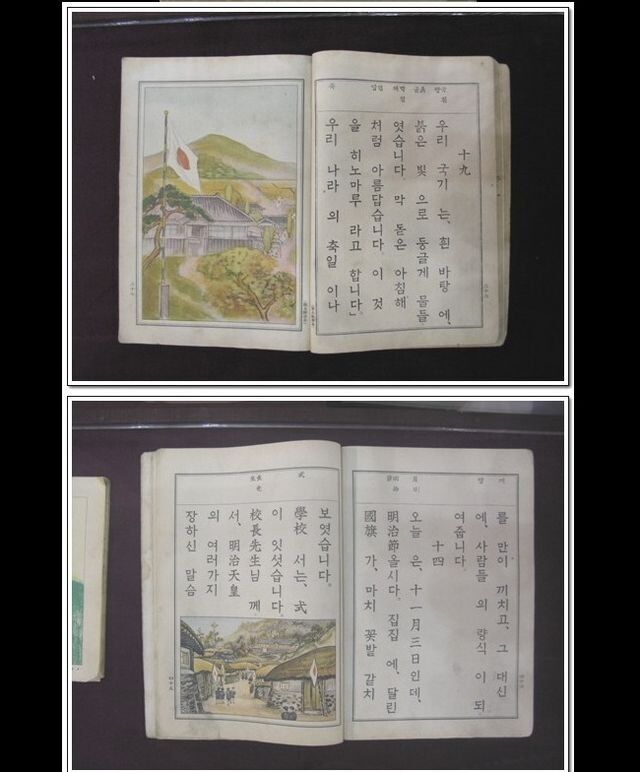 十九
우리 국기 는, 흰 바탕 에,
붉은 빛 으로 둥글게 물들
엿습니다. 막 돋은 아침해
처럼 아름답습니다. 이 것
을 히노마루 라고 합니다」
우리 나라 의 축일 이나
를 많이 끼치고, 그 대신
에, 사람들 의 량식 이 되
여줍니다.
十四
오늘 은, 十一月三日인데,
明治節올시다. 집집 에, 달린
國旗 가, 마치 꽃밭 같치
보엿습니다.
學校 서는, 式
이 잇섯습니다.
校長先生님 께
서, 明治天皇
의 여러가지
장하신 말슴